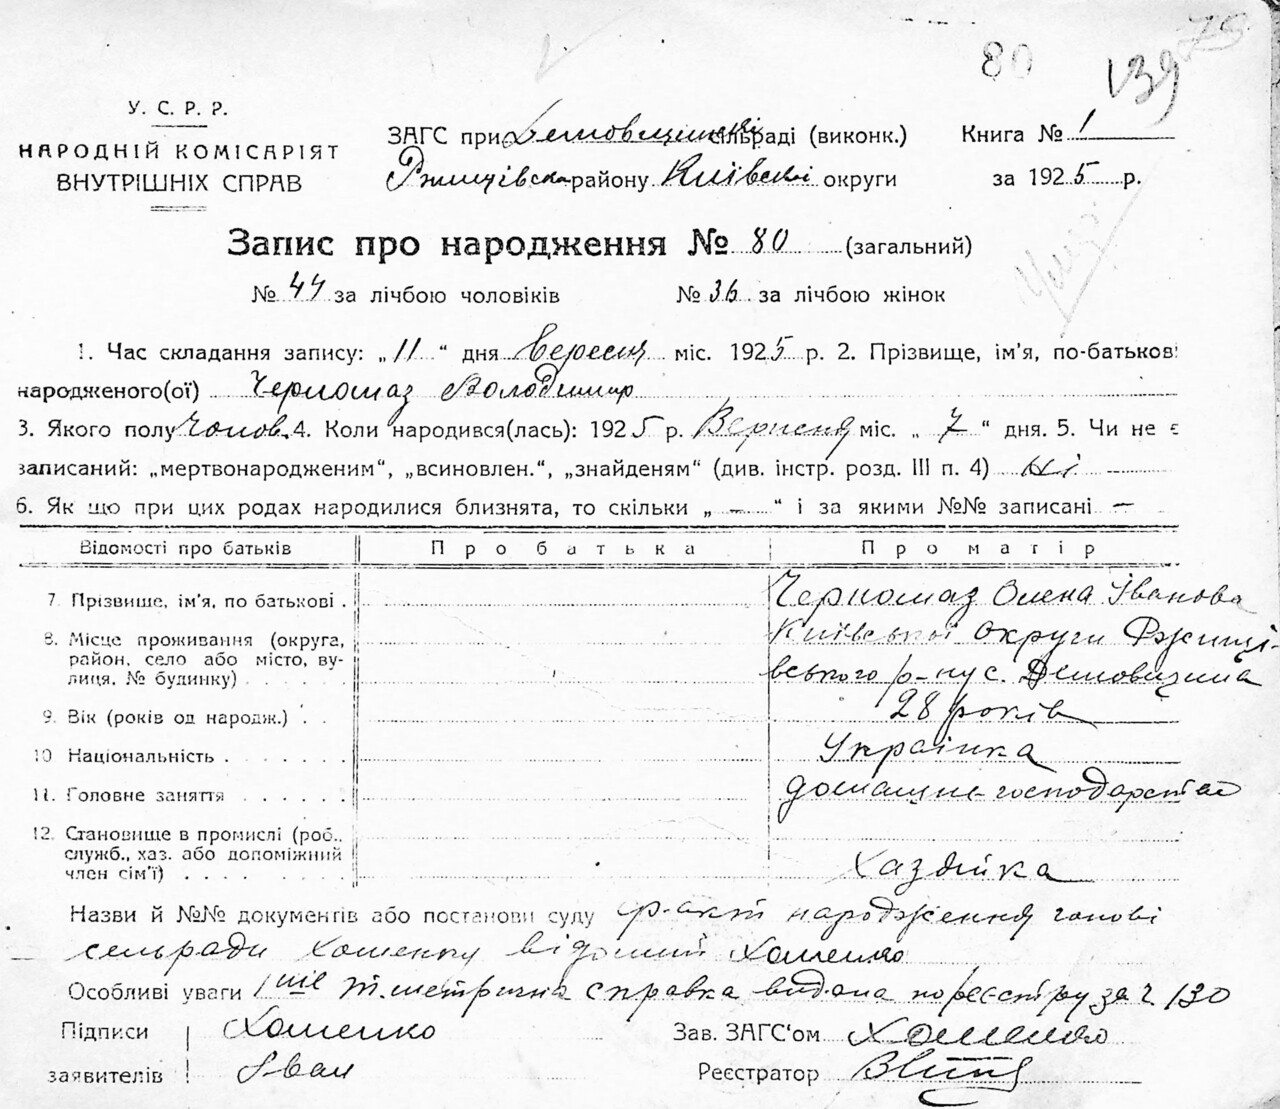 80 139 75
У. С. Р. Р.
НАРОДНІЙ КОМІСАРІЯТ
ВНУТРІШНІХ СПРАВ
ЗАГС при сільраді (виконк.)
Ржищівськ району Київської округи
Книга № 1
за 1925 р.
Запис про народження № 80 (загальний)
№ 44 за лічбою чоловіків № 36 за лічбою жінок
1. Час складання запису: „11“ дня Вересня міс. 1925 р. 2. Прізвище, ім'я, по-батькові
народженого(ої) Черномаз Володимир
3. Якого полу Чолов. 4. Коли народився(лась): 1925 р. Вересня міс. „7“ дня. 5. Чи не є
записаний: „мертвонародженим“, „всиновлен.“, „знайденям“ (див. інстр. розд. III п. 4) Ні
6. Як що при цих родах народилися близнята, то скільки „ — “ і за якими №№ записані —
Відомості про батьків Про батька Про матір
7. Прізвише, ім'я, по батькові . Черномаз Олена Іванова
8. Місце проживання (округа, район, село або місто, вулиця, № будинку) . . . . . Київської округи Ржищі-
вського р-ну с.
9. Вік (років од народж.) . . 28 років
10 Національність . . . . . . . Українка
11. Головне заняття . . . . . . домашне господарство
12. Становище в промислі (роб., служб., хаз. або допоміжний член сім'ї) . . . . . . . . Хазяйка
Назви й №№ документів або постанови суду факт народження голові
сельради Хоменку відомий Хоменко
Особливі уваги метрична справка видана по реєстру за ч 130
Підписи Хоменко Зав. ЗАГС'ом Хоменко
заявителів Іван Реєстратор